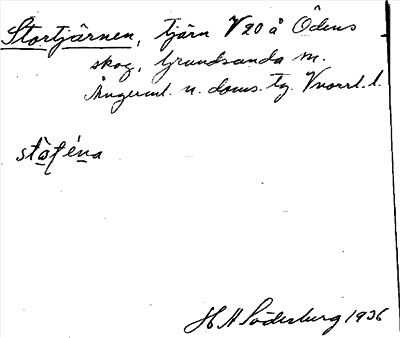 Stortjärnen, tjärn V 20 å Ödens
skog, Grundsunda sn.
Ångerml. n. doms. tg. Vnorrl. l.
H A Söderberg 1936